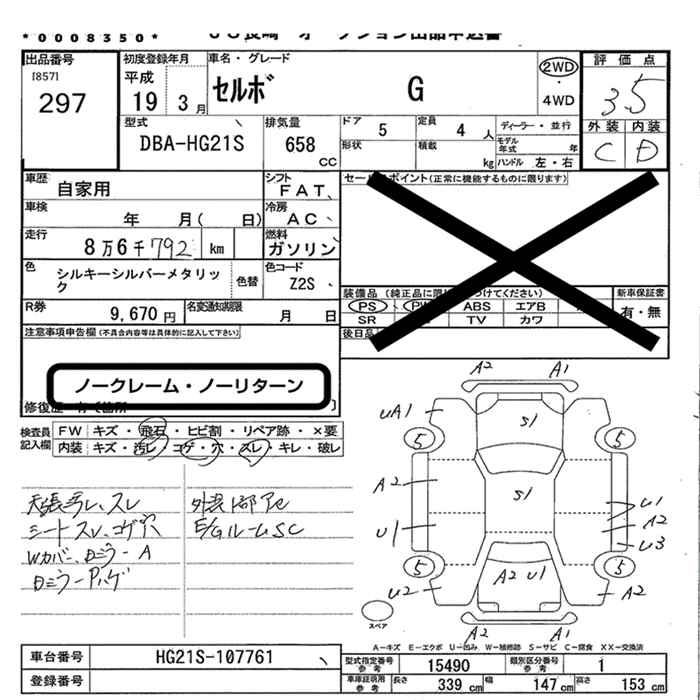 *0008350*
出品番号
[857]
297
初度登録年月
平成
19 3月
車名・グレード
セルボ G
2WD
・
4WD
評価点
3.5
外装 内装
C D
型式
DBA-HG21S
排気量
658
CC
ドア
5
定員
4 人
形状
積載
kg
ディーラー・並行
モデル
年式 年
ハンドル 左・右
車歴
自家用
シフト
FAT
車検
年 月( 日)
冷房
AC
走行
8万6千792 km
燃料
ガソリン
色
シルキーシルバーメタリッ
ク
色替
色コード
Z2S
R券
9,670 円
名変通知期限
月 日
セールスポイント(正常に機能するものに限ります)
装備品
PS ABS エアB
SR TV カワ
新車保証書
有・無
後日品
注意事項申告欄(不具合内容等は具体的に記入して下さい)
ノークレーム・ノーリターン
検査員
記入欄
FW キズ・飛石・ヒビ割・リペア跡・×要
内装 キズ・汚レ・コゲ・穴・スレ・キレ・破レ
天張汚レ、スレ
シートスレ、コゲ穴
Wカバー、ロミラーA
ロミラーPハゲ
外装下部Ae
E/GルームSC
A2 A1
UA1
S1
5 5
A2
S1
U1
A2
U1
U3
5 5
A2 U1
U2 A2
A2 A1
スペア
A-キズ E-エクボ U-凹み W-補修跡 S-サビ C-腐食 XX-交換済
車台番号
HG21S-107761
登録番号
型式指定番号
参考
15490
類別区分番号
参考
1
車庫証明用
参考
長さ
339 cm
幅
147 cm
高さ
153 cm